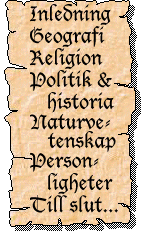 Inledning
Geografi
Religion
Politik &
historia
Naturve-
tenskap
Person-
ligheter
Till slut...